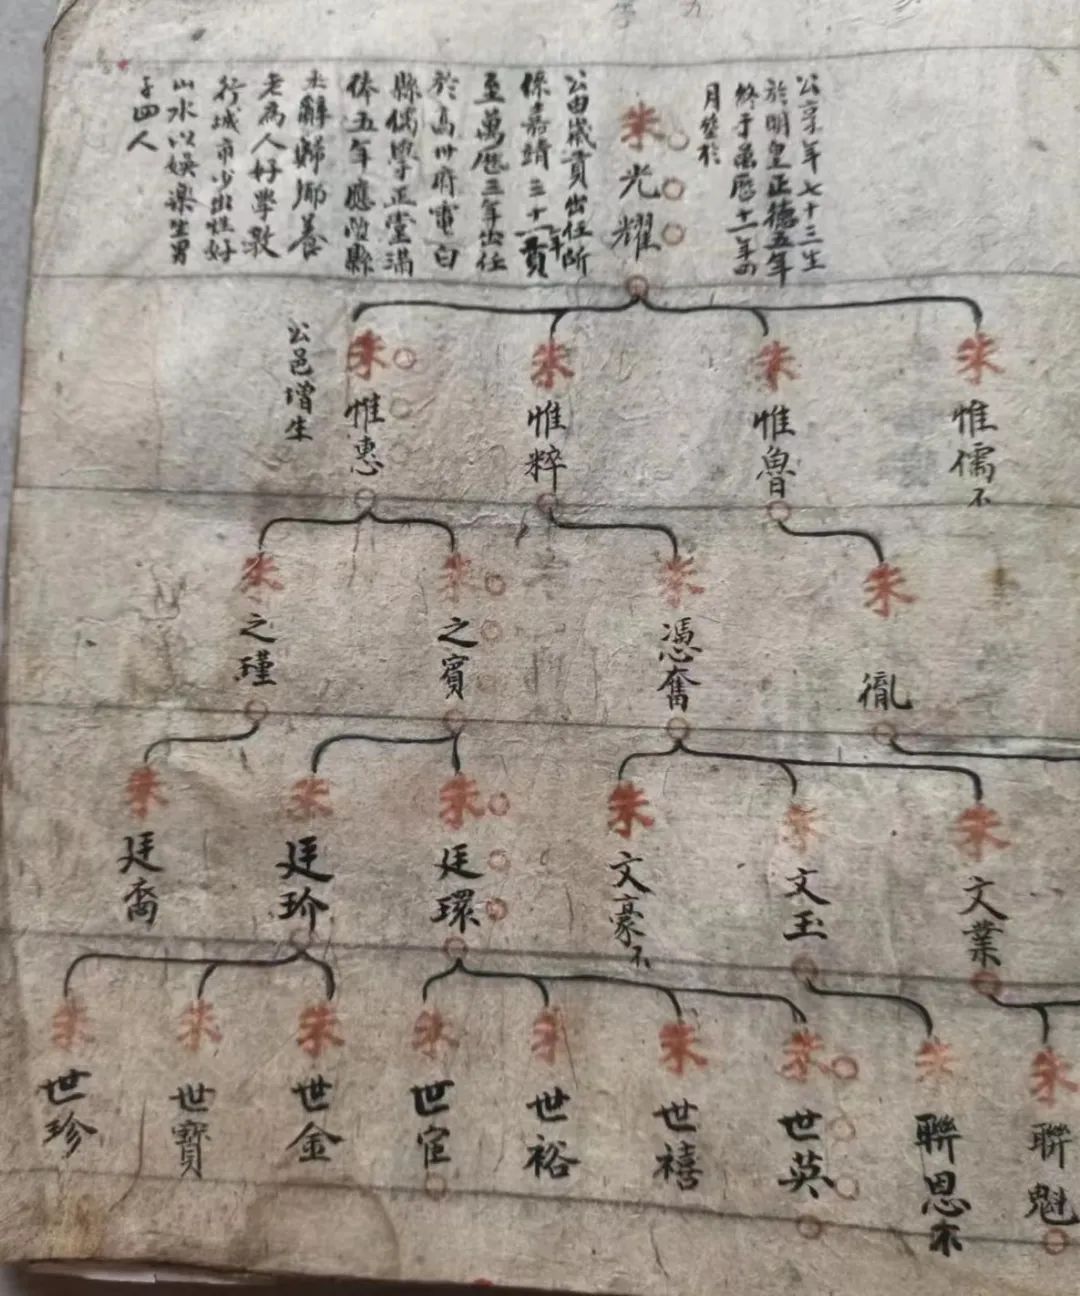 公享年七十三生
於明皇正德五年
終于萬曆十一年四
月葬於
朱光耀
公由歲貢出任所
係嘉靖三十一年貢
至萬曆三年出任
於高州府電白
縣儒學正堂滿
俸五年應陞縣
主辭歸鄉養
老為人好學敦
行城市少出性好
山水以娛樂生男
子四人
朱惟儒不
朱惟魯
朱惟粹
朱惟惠
公邑增生
朱胤
朱憑奮
朱之賓
朱之瑾
朱文業
朱文玉
朱文豪不
朱廷環
朱廷玠
朱廷裔
朱聯魁
朱聯恩不
朱世英
朱世禧
朱世裕
朱世官
朱世金
朱世寶
朱世珍